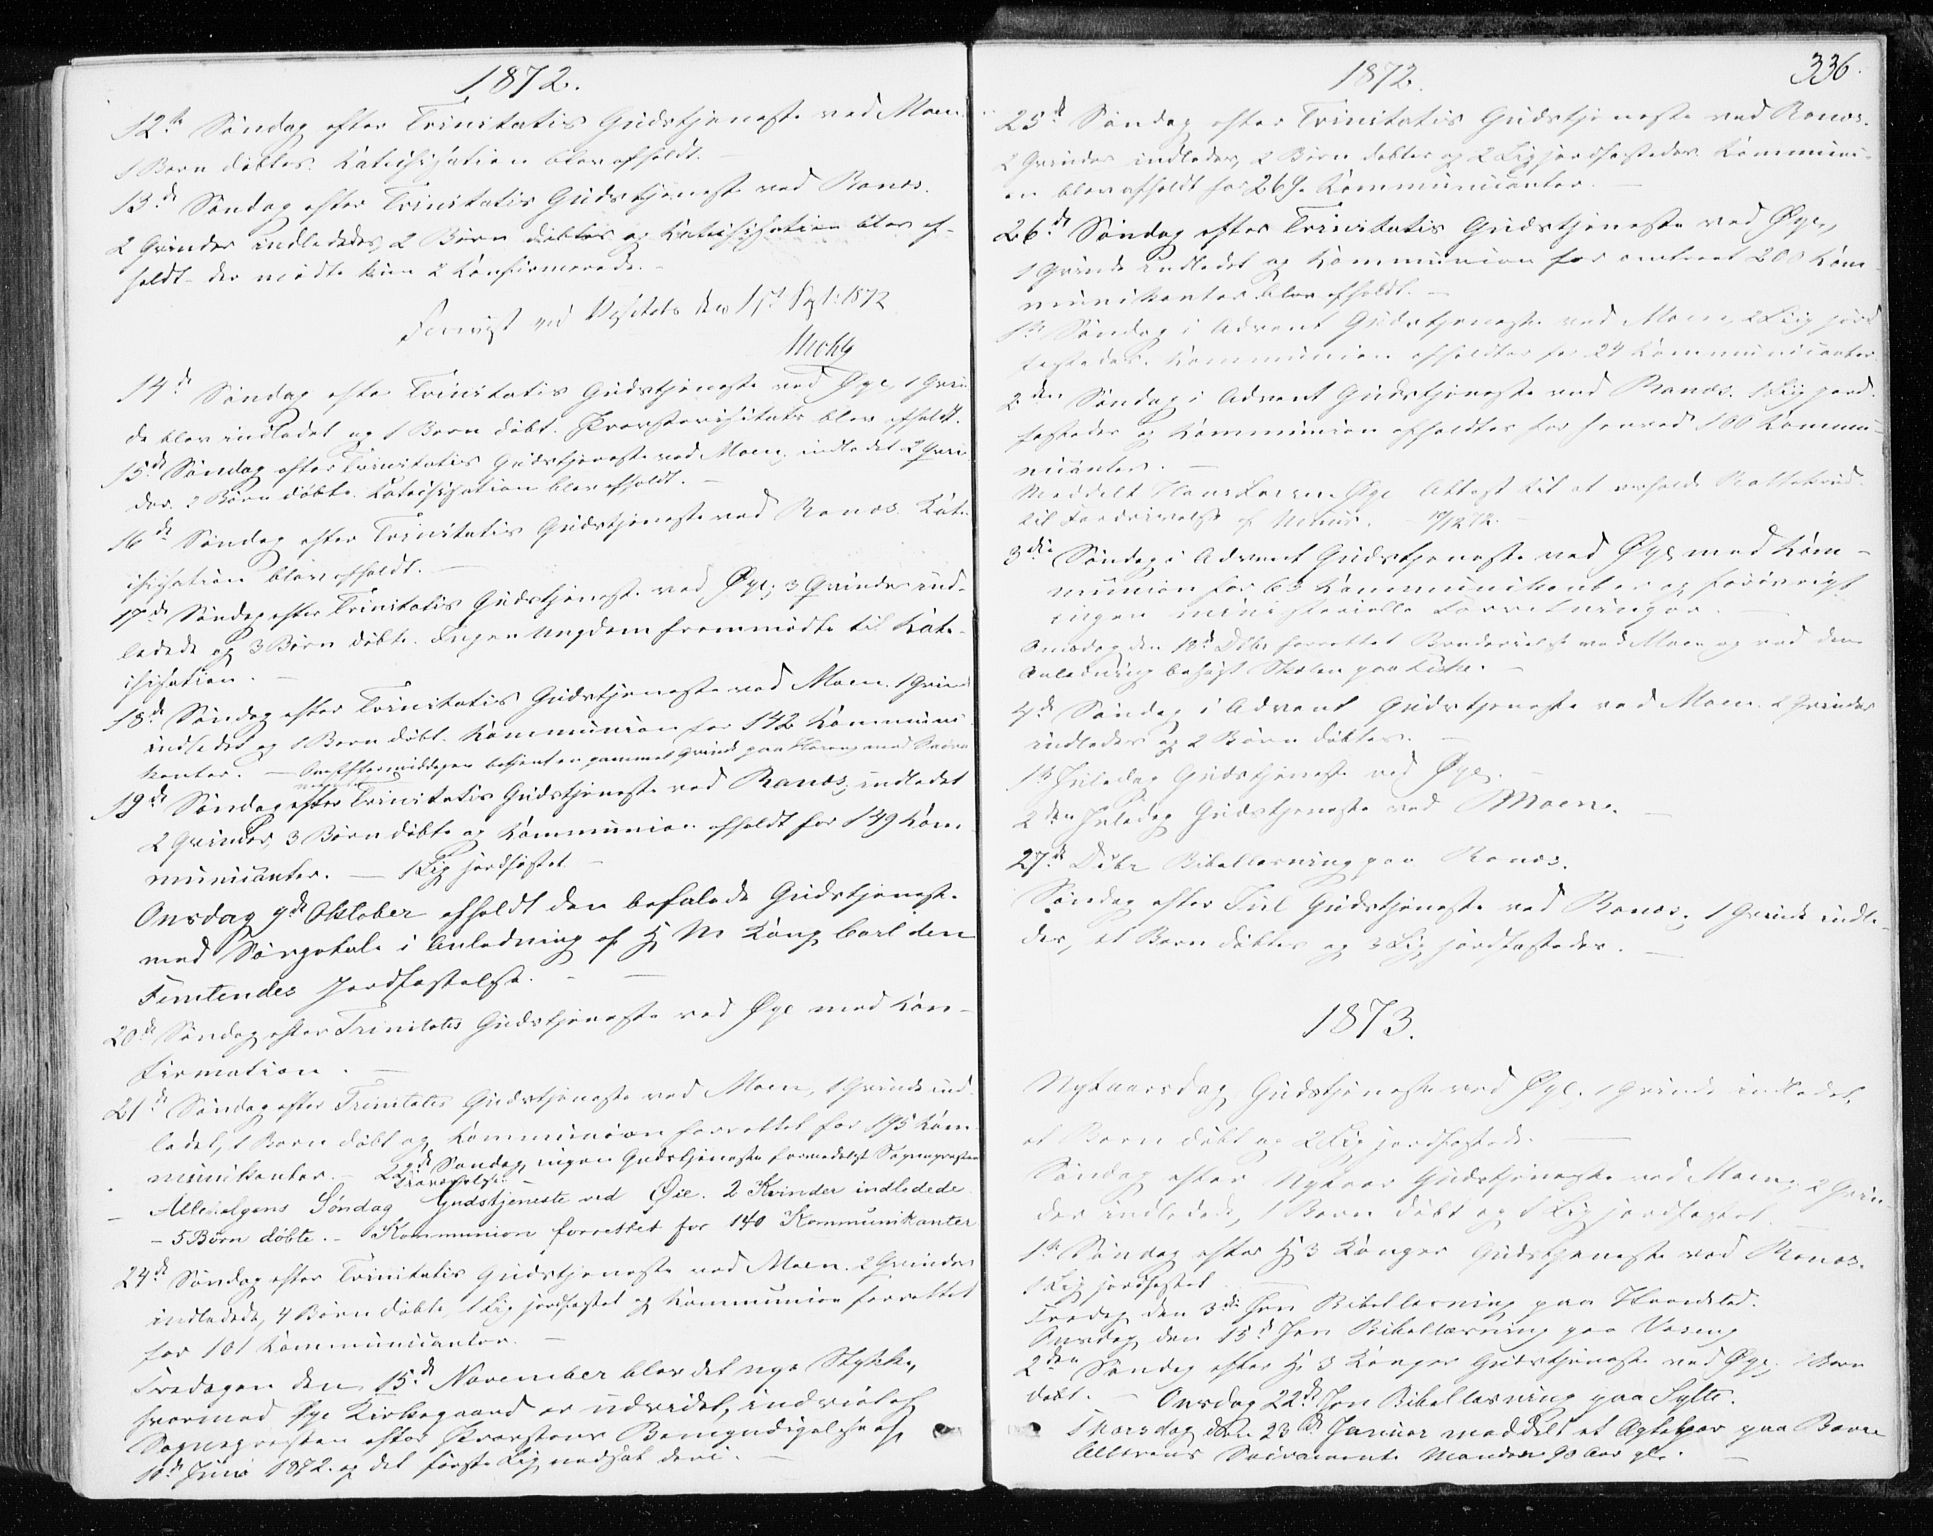 1872.
12te Søndag efter Trinitatis Gudstjeneste ved Moen
1 Barn døbtes. Katechisation blev afholdt. —
13de Søndag efter Trinitatis Gudstjeneste ved Ranæs.
2 Qvinder indlededes, 2 Børn døbtes og Katechisation blev af-
holdt – der mødte kun 2 Konfirmerede. –
Foreviist ved Visitats den 1ste Sept: 1872
14de Søndag efter Trinitatis Gudstjeneste ved Øye, 1 Qvin-
de blev indledet og 1 Barn døbt. Provstevisitats blev afholdt.
15de Søndag efter Trinitatis Gudstjeneste ved Moen, indledet 2 Qvin-
der. 2 Børn døbte. Katechisation blev afholdt. –
16de Søndag efter Trinitatis Gudstjeneste ved Ranæs. Kate-
chisation blev afholdt. —
17de Søndag efter Trinitatis Gudstjeneste ved Øye; 3 Qvinder ind-
ledede og 3 Børn døbte. Ingen Ungdom fremmødte til Kate-
chisation. –
18de Søndag efter Trinitatis Gudstjeneste ved Moen. 1 Qvinde
indledet og 1 Barn døbt. Kommunion for 142 Kommuni-
kanter. — Om Eftermiddagen besøgt en gammel Qvinde paa
19de Søndag efter Trinitatis Gudstjeneste ved Ranæs, indledet
2 Qvinder, 3 Børn døbte og Kommunion afholdt for 149 Kom-
municanter. — 1 Lig jordfæstet –
Onsdag 9de Oktober afholdt den befalede Gudstjeneste
med Sørgetale i Anledning af H M Kong Carl den
Femtendes Jordfæstelse. – —
20de Søndag efter Trinitatis Gudstjeneste ved Øye med Kon-
firmation. —
21de Søndag efter Trinitatis Gudstjeneste ved Moen, 1 Qvinde ind-
ledet, 1 Barn døbt og Kommunion forrettet for 195 Kom-
munikanter. – 22de Søndag ingen Gudstjeneste formedelst Sognepræstens
Fraværelse. –
– Allehelgens Søndag Gudstjeneste ved Øie. 2 Kvinder indledede
– 5 Børn døbte. – Kommunion forrettet for 140 Kommunikanter
24de Søndag efter Trinitatis Gudstjeneste ved Moen. 2 Qvinder
indledede, 4 Børn døbte, 1 Lig jordfæstet og Kommunion forrettet
for 101 Kommunicanter. –
Fredagen den 15de November blev det nye Stykke,
hvormed Øye Kirkegaard er udvidet, indviet af
Sognepræsten efter Provstens Bemyndigelse af
10de Juni 1872. og det første Lig nedsat deri. –
1872.
336.
25de Søndag efter Trinitatis Gudstjeneste ved Ranæs.
2 Qvinder indledes, 2 Børn døbtes og 2 Lig jordfæstedes. Kommuni-
on blev afholdt for 269 Kommunicanter. —
26de Søndag efter Trinitatis Gudstjeneste ved Øye,
1 Qvinde indledet og Kommunion for omtrent 200 Kom-
munikanter blev afholdt. –
1ste Søndag i Advent Gudstjeneste ved Moen, 2 Liig jord-
fæstedes. Kommunion afholdtes for 24 Kommunicanter
2den Søndag i Advent Gudstjeneste ved Ranæs. 1 Liig jord-
fæstedes og Kommunion afholdtes for henved 100 Kommu-
nicanter. —
Meddelt Hans Øye Attest til at erholde Rottekrud
til Fordrivelse af
3die Søndag i Advent Gudstjeneste ved Øye med Kom-
munion for 63 Kommunikanter og forøvrigt
ingen ministerielle Forretninger. —
Onsdag den 18de Dcbr forrettet Brudevielse ved Moen og ved den
Anledning besøgt Skolen paa
4de Søndag i Advent Gudstjeneste ved Moen. 2 Qvinder
indledes og 2 Børn døbtes. –
1ste Juledag Gudstjeneste ved Øye. –
2den Juledag Gudstjeneste ved Moen. —
27de Dcbr Bibellæsning paa Ranæs.
Søndag efter Jul Gudstjeneste ved Ranæs. 1 Qvinde indle-
des, et Barn døbtes og 3 Lig jordfæstedes. —
1873.
Nytaarsdag Gudstjeneste ved Øye. 1 Qvinde indledet,
et Barn døbt og 2 Lig jordfæstede. —
Søndag efter Nytaar Gudstjeneste ved Moen, 2 Qvin-
der indledede, 1 Barn døbt og 1 Lig jordfæstet. —
1ste Søndag efter H 3 Konger Gudstjeneste ved Ranæs.
1 Lig jordfæstet —
Fredag den 3die Jan Bibellæsning paa
Onsdag den 15de Jan Bibellæsning paa
2den Søndag efter H 3 Konger Gudstjeneste ved Øye. 1 Barn
døbt. – Onsdag 22de Jan Bibellæsning paa Sylte.
Thorsdag den 23de Januar meddelt et Ægtepar paa
Alterens Sacramente Manden 90 Aar gl. —